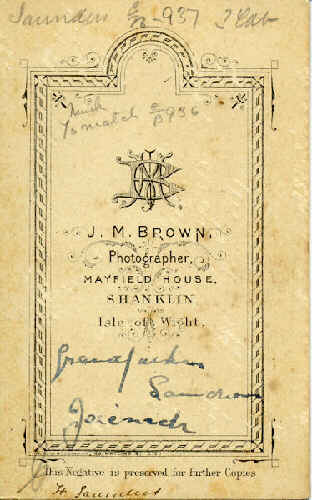 Saunders E/B-937
to match E/B 936
J. M. BROWN,
Photographer,
MAYFIELD HOUSE,
SHANKLIN
Isle of Wight.
Grandfather
Saunders
Friends
This Negative is preserved for further Copies